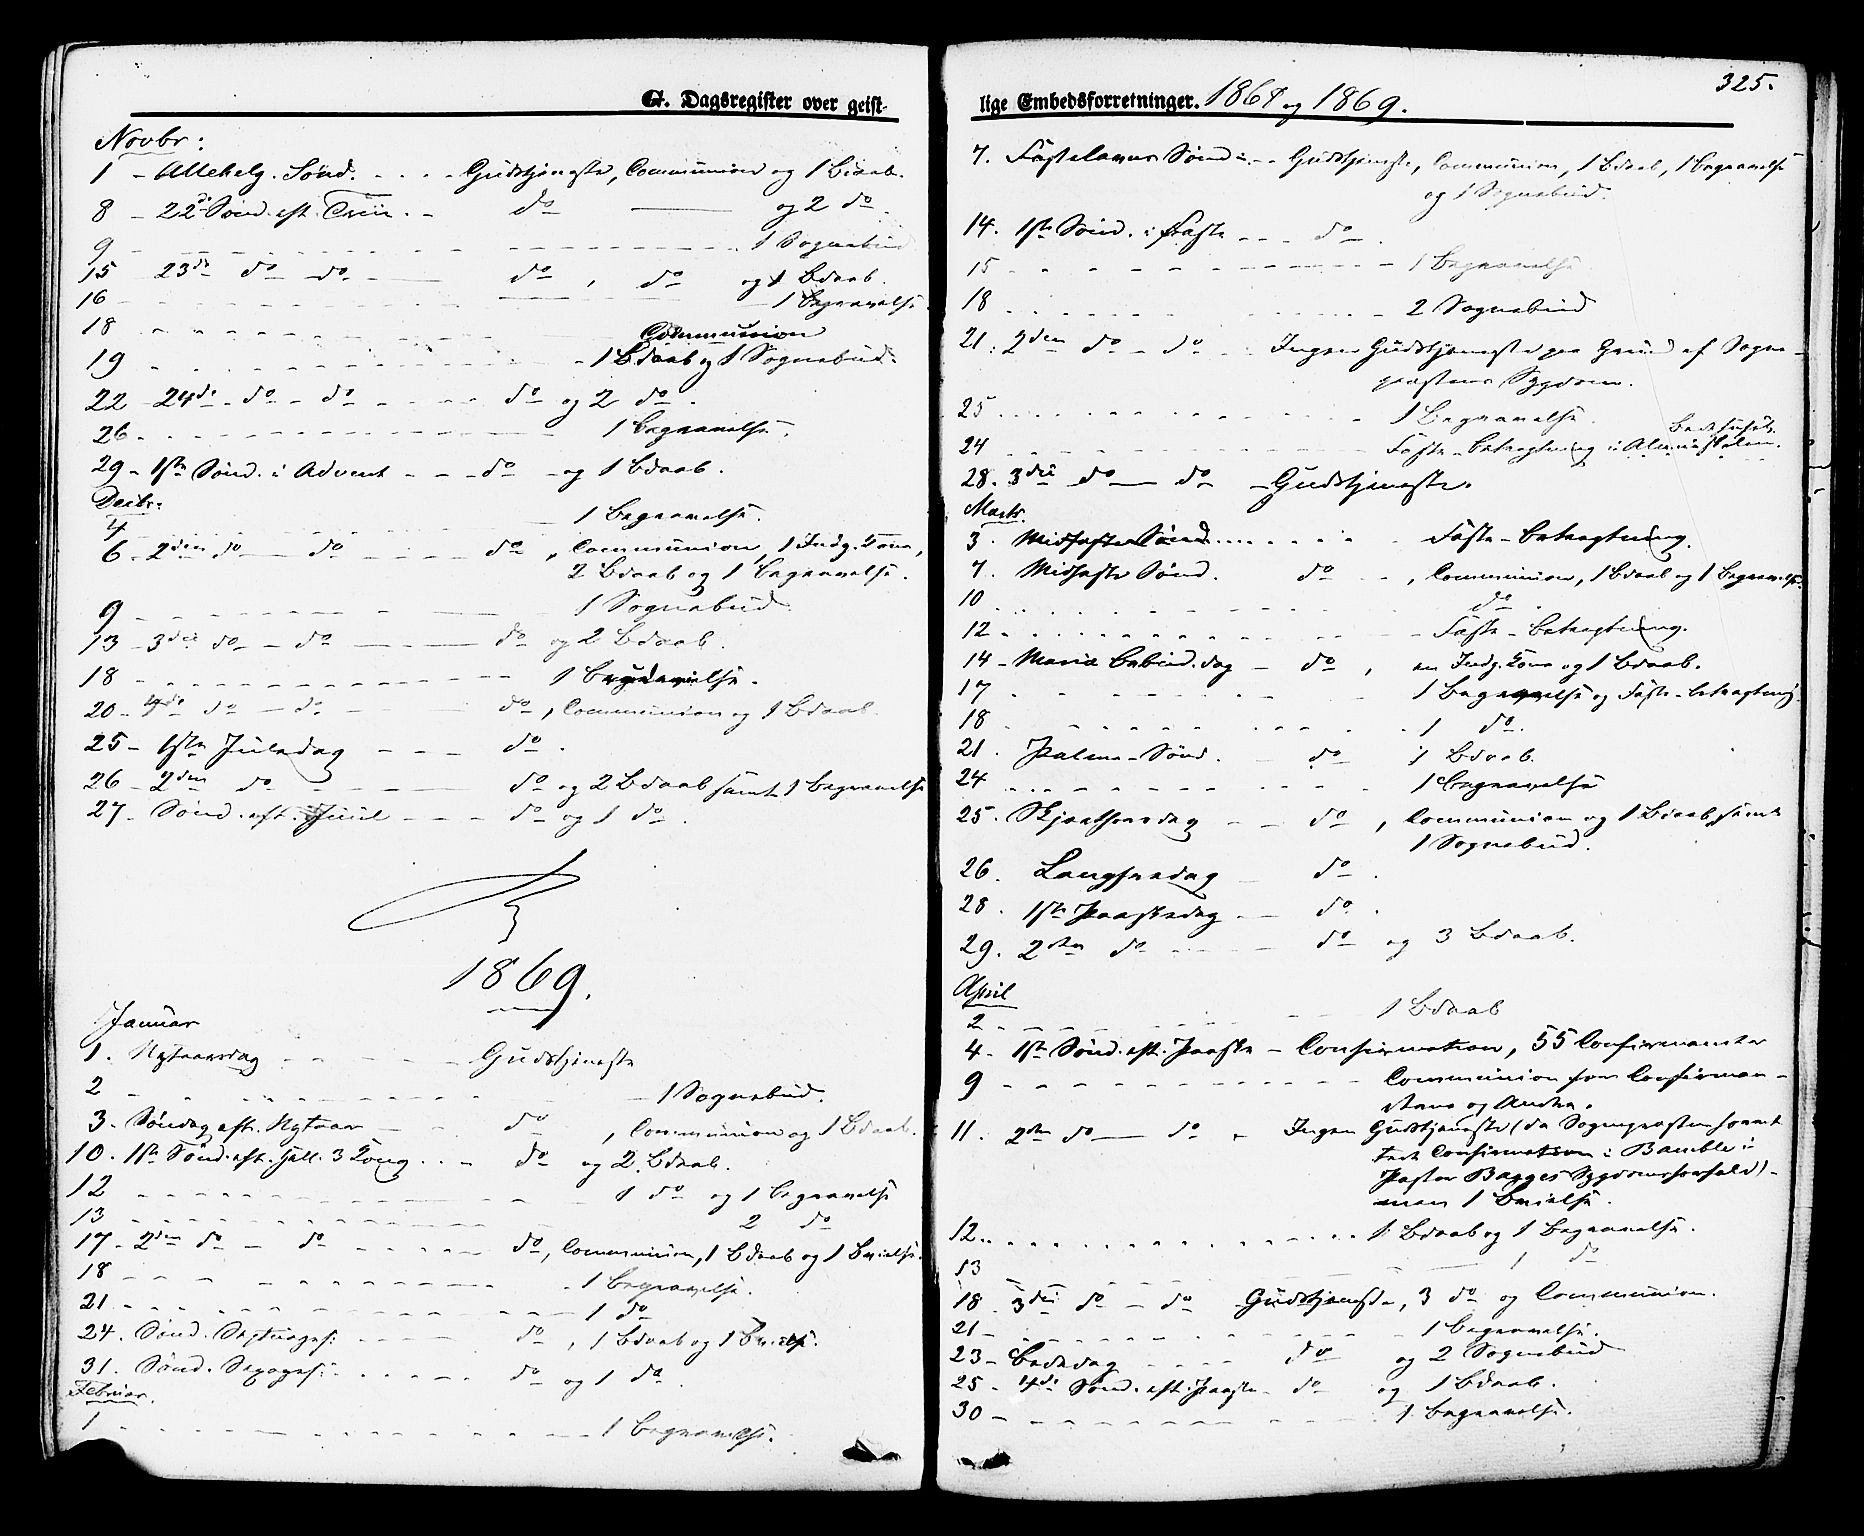 G. Dagsregister over geist-
Novbr:
1 - Allehelg. Sønd. - - - - Gudstjeneste, Communion og 1 Bdaab.
8 - 22d Sønd. eft. Trin. - do —— og 2 do.
9 - - - - - 1 Sognebud
15 23de do do —— do , do og 1 Bdaab.
16 - - - - - 1 Begravelse.
18 - - - - - Communion
19 - - - - - 1 Bdaab og 1 Sognebud.
22 24de do - do - - - - do og 2 do.
26 - - - - - 1 Begravelse.
29 - 1ste Sønd. i Advent - - - do - og 1 Bdaab.
Decbr:
4 - - - - - 1 Begravelse.
6 - 2den do — do - - - - do , Communion, 1 Indg. Kone,
2 Bdaab og 1 Begravelse.
9 - - - - - 1 Sognebud
13 - 3die do - do —— do og 2 Bdaab.
18 - - - - - 1 Begravelse.
20 - 4de do - do - - - do , Communion og 1 Bdaab.
25 - 1ste Juledag - - - do .
26 - 2den do - - - - do og 2 Bdaab samt 1 Begravelse
27 - Sønd. eft. Juul - - - do og 1 do .
1869.
Januar
1. Nytaarsdag - - - - Gudstjeneste
2 - - - - - 1 Sognebud.
3. Søndag eft. Nytaar - - - do , Communion og 1 Bdaab.
10. 1ste Sønd. eft. Hell. 3 Kong. . . - do og 2 Bdaab.
12 - - - - - 1 do og 1 Begravelse
13 - - - - - 2 do
17 - 2den do - do - - - - do , Communion, 1 Bdaab og 1 Vielse.
18 - - - - - 1 Begravelse.
21 - - - - - 1 do
24. Sønd. Septuages: - - - - do , 1 Bdaab og 1 Vielse.
31. Sønd. Sexages: - - - - do og 1 do .
Februar.
1 - - - - - 1 Begravelse.
lige Embedsforretninger. 1868 og 1869.
325.
7. Fastelavns Sønd: - - Gudstjeneste, Communion, 1 Bdaab, 1 Begravelse
og 1 Sognebud.
14. 1ste Sønd. i Faste - - - do .
15 - - - - - 1 Begravelse
18 - - - - - 2 Sognebud
21. 2den do - do - - Ingen Gudstjeneste paa Grund af Sogne-
præstens Sygdom.
25 - - - - - 1 Begravelse.
Bedehuset.
24 - - - - - Faste-betragtning i
28. 3die do — do - Gudstjeneste.
Marts.
3. Midfaste Sønd. . . . - - Faste-betragtning.
7. Midfaste Sønd. do - - , Communion, 1 Bdaab og 1 Begravelse.
10 - - - - - do .
12 - - - - - Faste-betragtning.
14 - Mariæ Bebud. dag - do , en Indg. Kone og 1 Bdaab.
17 - - - - - 1 Begravelse og Faste-betragtning.
18 - - - - - 1 do.
21. Palme-Sønd. - do 1 Bdaab.
24 - - - - - 1 Begravelse
25. Skjærthorsdag - - do , Communion og 1 Bdaab, samt
1 Sognebud.
26. Langfredag - do .
28. 1ste Paaskedag - do .
29. 2den do - - - do og 3 Bdaab.
April
2 - - - - - 1 Bdaab
4 - 1ste Sønd. eft. Paaske - Confirmation, 55 Confirmanter
9 - - - - - Communion for Confirman-
terne og Andre.
11. 2den do — do - Ingen Gudstjeneste (da Sognepræsten foret-
tede Confirmation i Bamble i
Pastor Bagges Sygdomsforfald) -
men 1 Vielse.
12 - - - - - 1 Bdaab og 1 Begravelse.
13 - - - - - 1 do
18. 3die do - do Gudstjeneste, 3 do og Communion.
21 - - - - - 1 Begravelse.
23 - Bededag - - - - do og 2 Sognebud
25 - 4de Sønd. eft. Paaske - do og 1 Bdaab.
30 - - - - - 1 Begravelse.